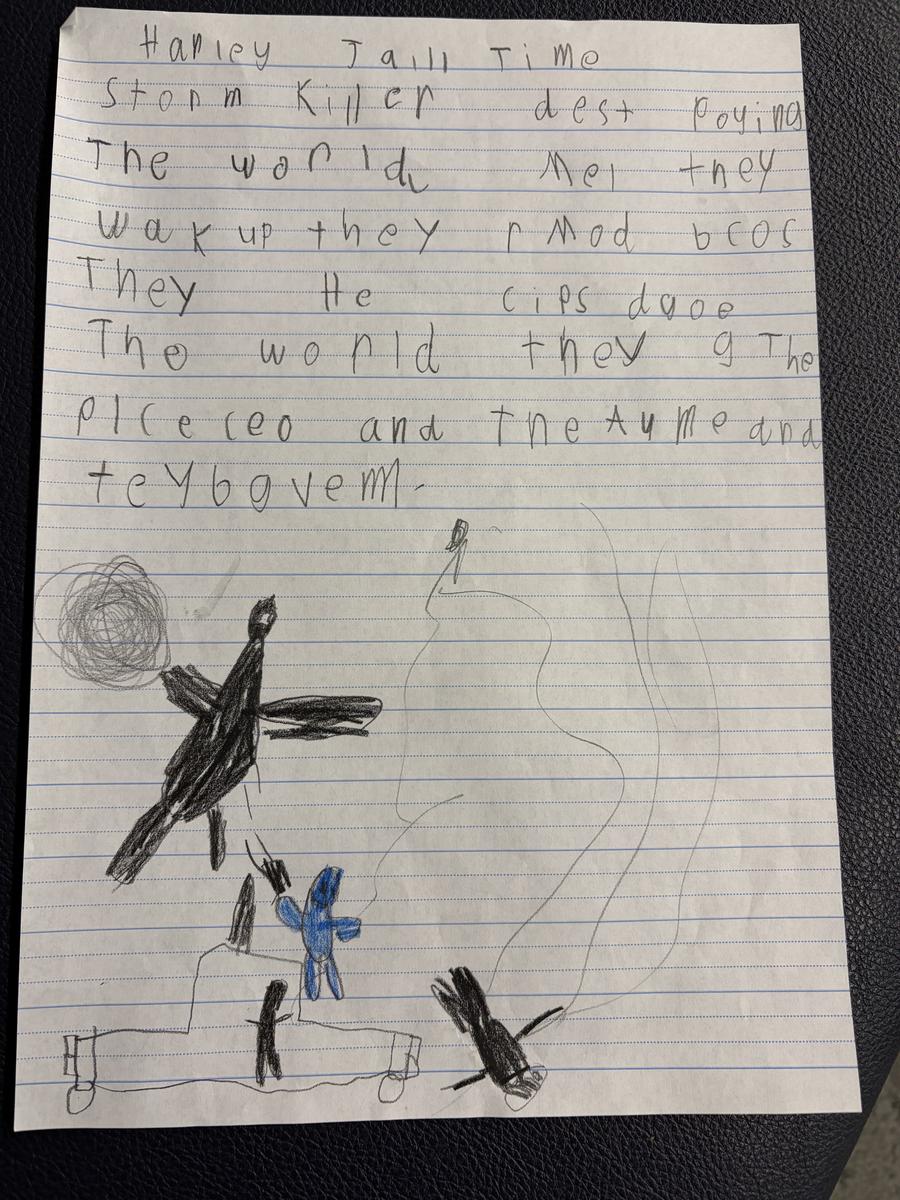 Harley Jaill Time
Storm Killer dest Roying
The world Mel they
wak up they r Mod bcos
They He cips dgoe
The world they g The
plce ceo and the Ayme and
teybgvem.